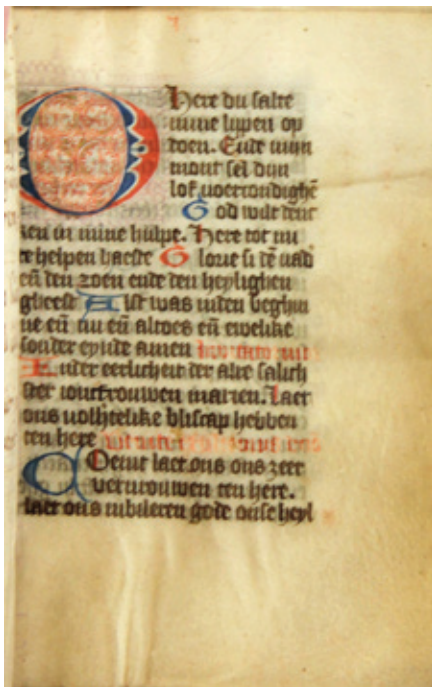 Here du salte
mine lippen op
doen. Ende mijn
mont sel dijn
lof voercondighē
God wilt denc
ken in mine hulpe. Here tot mi
te helpen haeste Glorie si dē vad
eñ den zoen ende den heylighen
gheest Als was inden beghin
ne eñ nu eñ altoes eñ ewelike
sonder eynde amen
In der eerlicheit der alre salich
ster ioncfrouwen marien. Laet
ons volhertelike bliscap hebben
ten here
Coemt laet ons ons zeer
vervrouwen ten here.
laet ons iubileren gode onse heyl